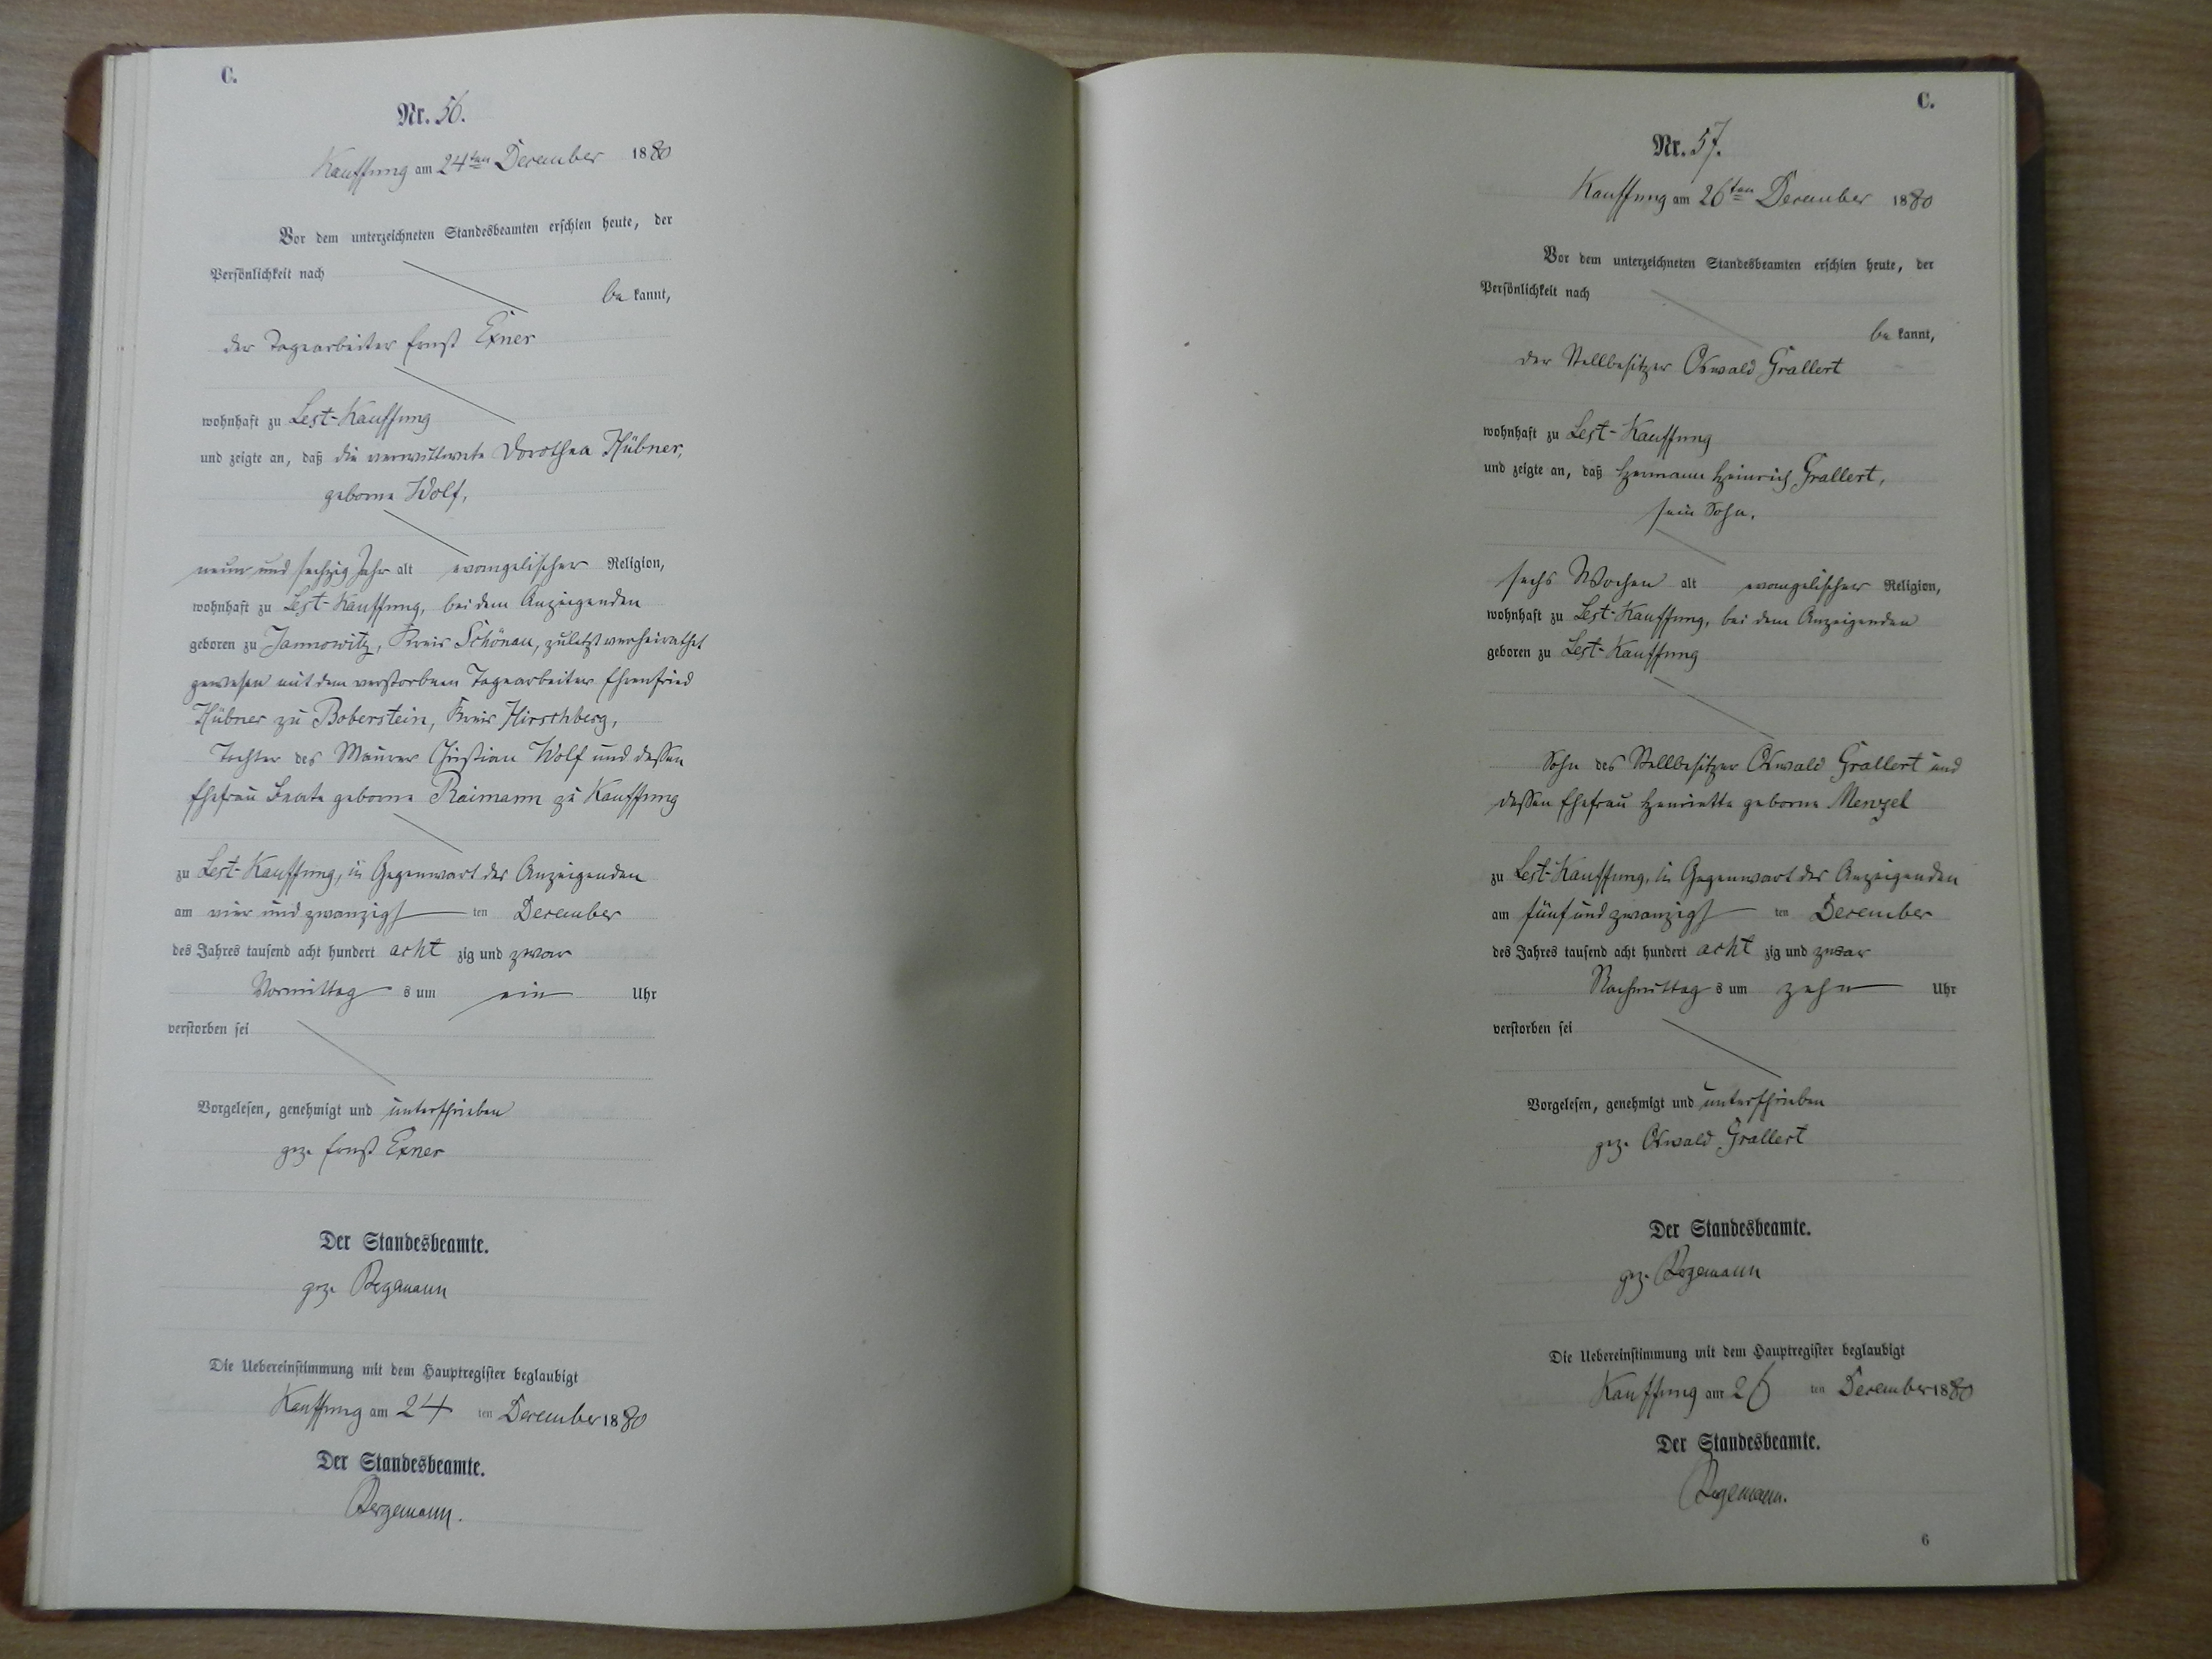 C.
Nr. 56.
Kauffung am 24ten December 1880
Vor dem unterzeichneten Standesbeamten erschien heute, der
Persönlichkeit nach
be kannt,
der Tagearbeiter Ernst Exner
wohnhaft zu Lest-Kauffung
und zeigte an, daß die verwittwete Dorothea Hübner,
geborne Wolf,
neun und sechzig Jahr alt evangelischer Religion,
wohnhaft zu Lest-Kauffung, bei dem Anzeigenden
geboren zu Jannowitz, Kreis Schönau, zuletzt verheirathet
gewesen mit dem verstorbnen Tagearbeiter Ehrenfried
Hübner zu Boberstein, Kreis Hirschberg,
Tochter des Maurer Christian Wolf und dessen
Ehefrau Beate geborne Raimann zu Kauffung
zu Lest-Kauffung, in Gegenwart des Anzeigenden
am vier und zwanzigs ten December
des Jahres tausend acht hundert acht zig und zwar
Vormittag s um ein Uhr
verstorben sei
Vorgelesen, genehmigt und unterschrieben
gez. Ernst Exner
Der Standesbeamte.
gez. Bergemann
Die Uebereinstimmung mit dem Hauptregister beglaubigt
Kauffung am 24 ten December 1880
Der Standesbeamte.
Bergemann.
C.
Nr. 57.
Kauffung am 26ten December 1880
Vor dem unterzeichneten Standesbeamten erschien heute, der
Persönlichkeit nach
be kannt,
der Stellbesitzer Oswald Grallert
wohnhaft zu Lest-Kauffung
und zeigte an, daß Hermann Heinrich Grallert,
sein Sohn,
sechs Wochen alt evangelischer Religion,
wohnhaft zu Lest-Kauffung, bei dem Anzeigenden
geboren zu Lest-Kauffung
Sohn des Stellbesitzer Oswald Grallert und
dessen Ehefrau Henriette geborne Menzel
zu Lest-Kauffung, in Gegenwart des Anzeigenden
am fünf und zwanzigs ten December
des Jahres tausend acht hundert acht zig und zwar
Nachmittag s um zehn Uhr
verstorben sei
Vorgelesen, genehmigt und unterschrieben
gez. Oswald Grallert
Der Standesbeamte.
gez. Bergemann
Die Uebereinstimmung mit dem Hauptregister beglaubigt
Kauffung am 26 ten December 1880
Der Standesbeamte.
Bergemann.
6